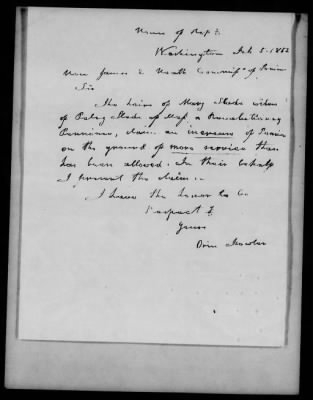 House of Rep.
Washington Feb 5. 1852
Hon James E Heath Commissr of Pensn
Sir
The heirs of Mary Slade widow
of Peleg Slade of Mass a Revolutionary
Pensioner, claim an increase of Pension
on the ground of more service than
has been allowed. In their behalf
I present the claim.
I have the honor to be
Respect y
Yours
Orin Fowler